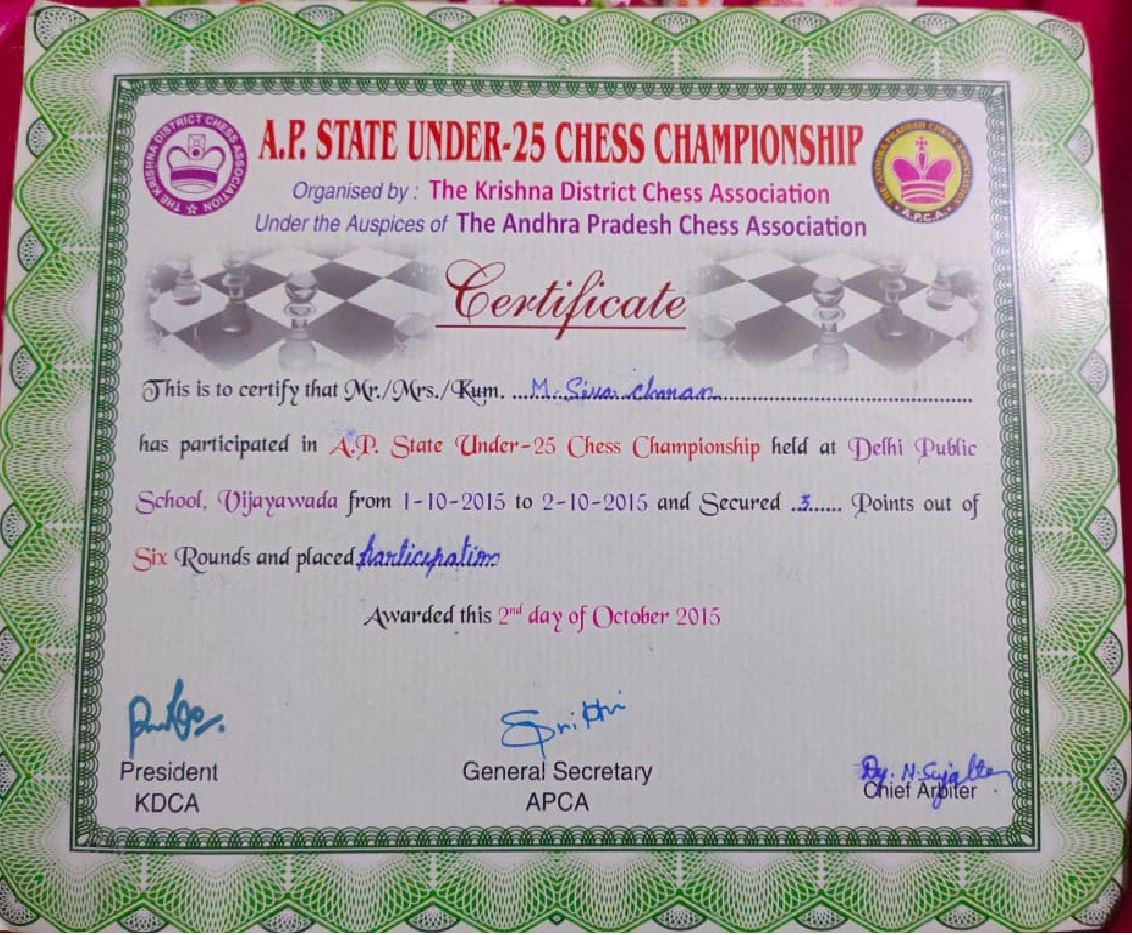 THE KRISHNA DISTRICT CHESS ASSOCIATION
A.P. STATE UNDER-25 CHESS CHAMPIONSHIP
THE ANDHRA PRADESH CHESS ASSOCIATION
A.P.C.A.
Organised by : The Krishna District Chess Association
Under the Auspices of The Andhra Pradesh Chess Association
Certificate
This is to certify that Mr./Mrs./Kum. ....M. Siva ........
has participated in A.P. State Under-25 Chess Championship held at Delhi Public
School, Vijayawada from 1-10-2015 to 2-10-2015 and Secured ..3...... Points out of
Six Rounds and placed participation
Awarded this 2nd day of October 2015
President
General Secretary
Chief Arbiter
KDCA
APCA